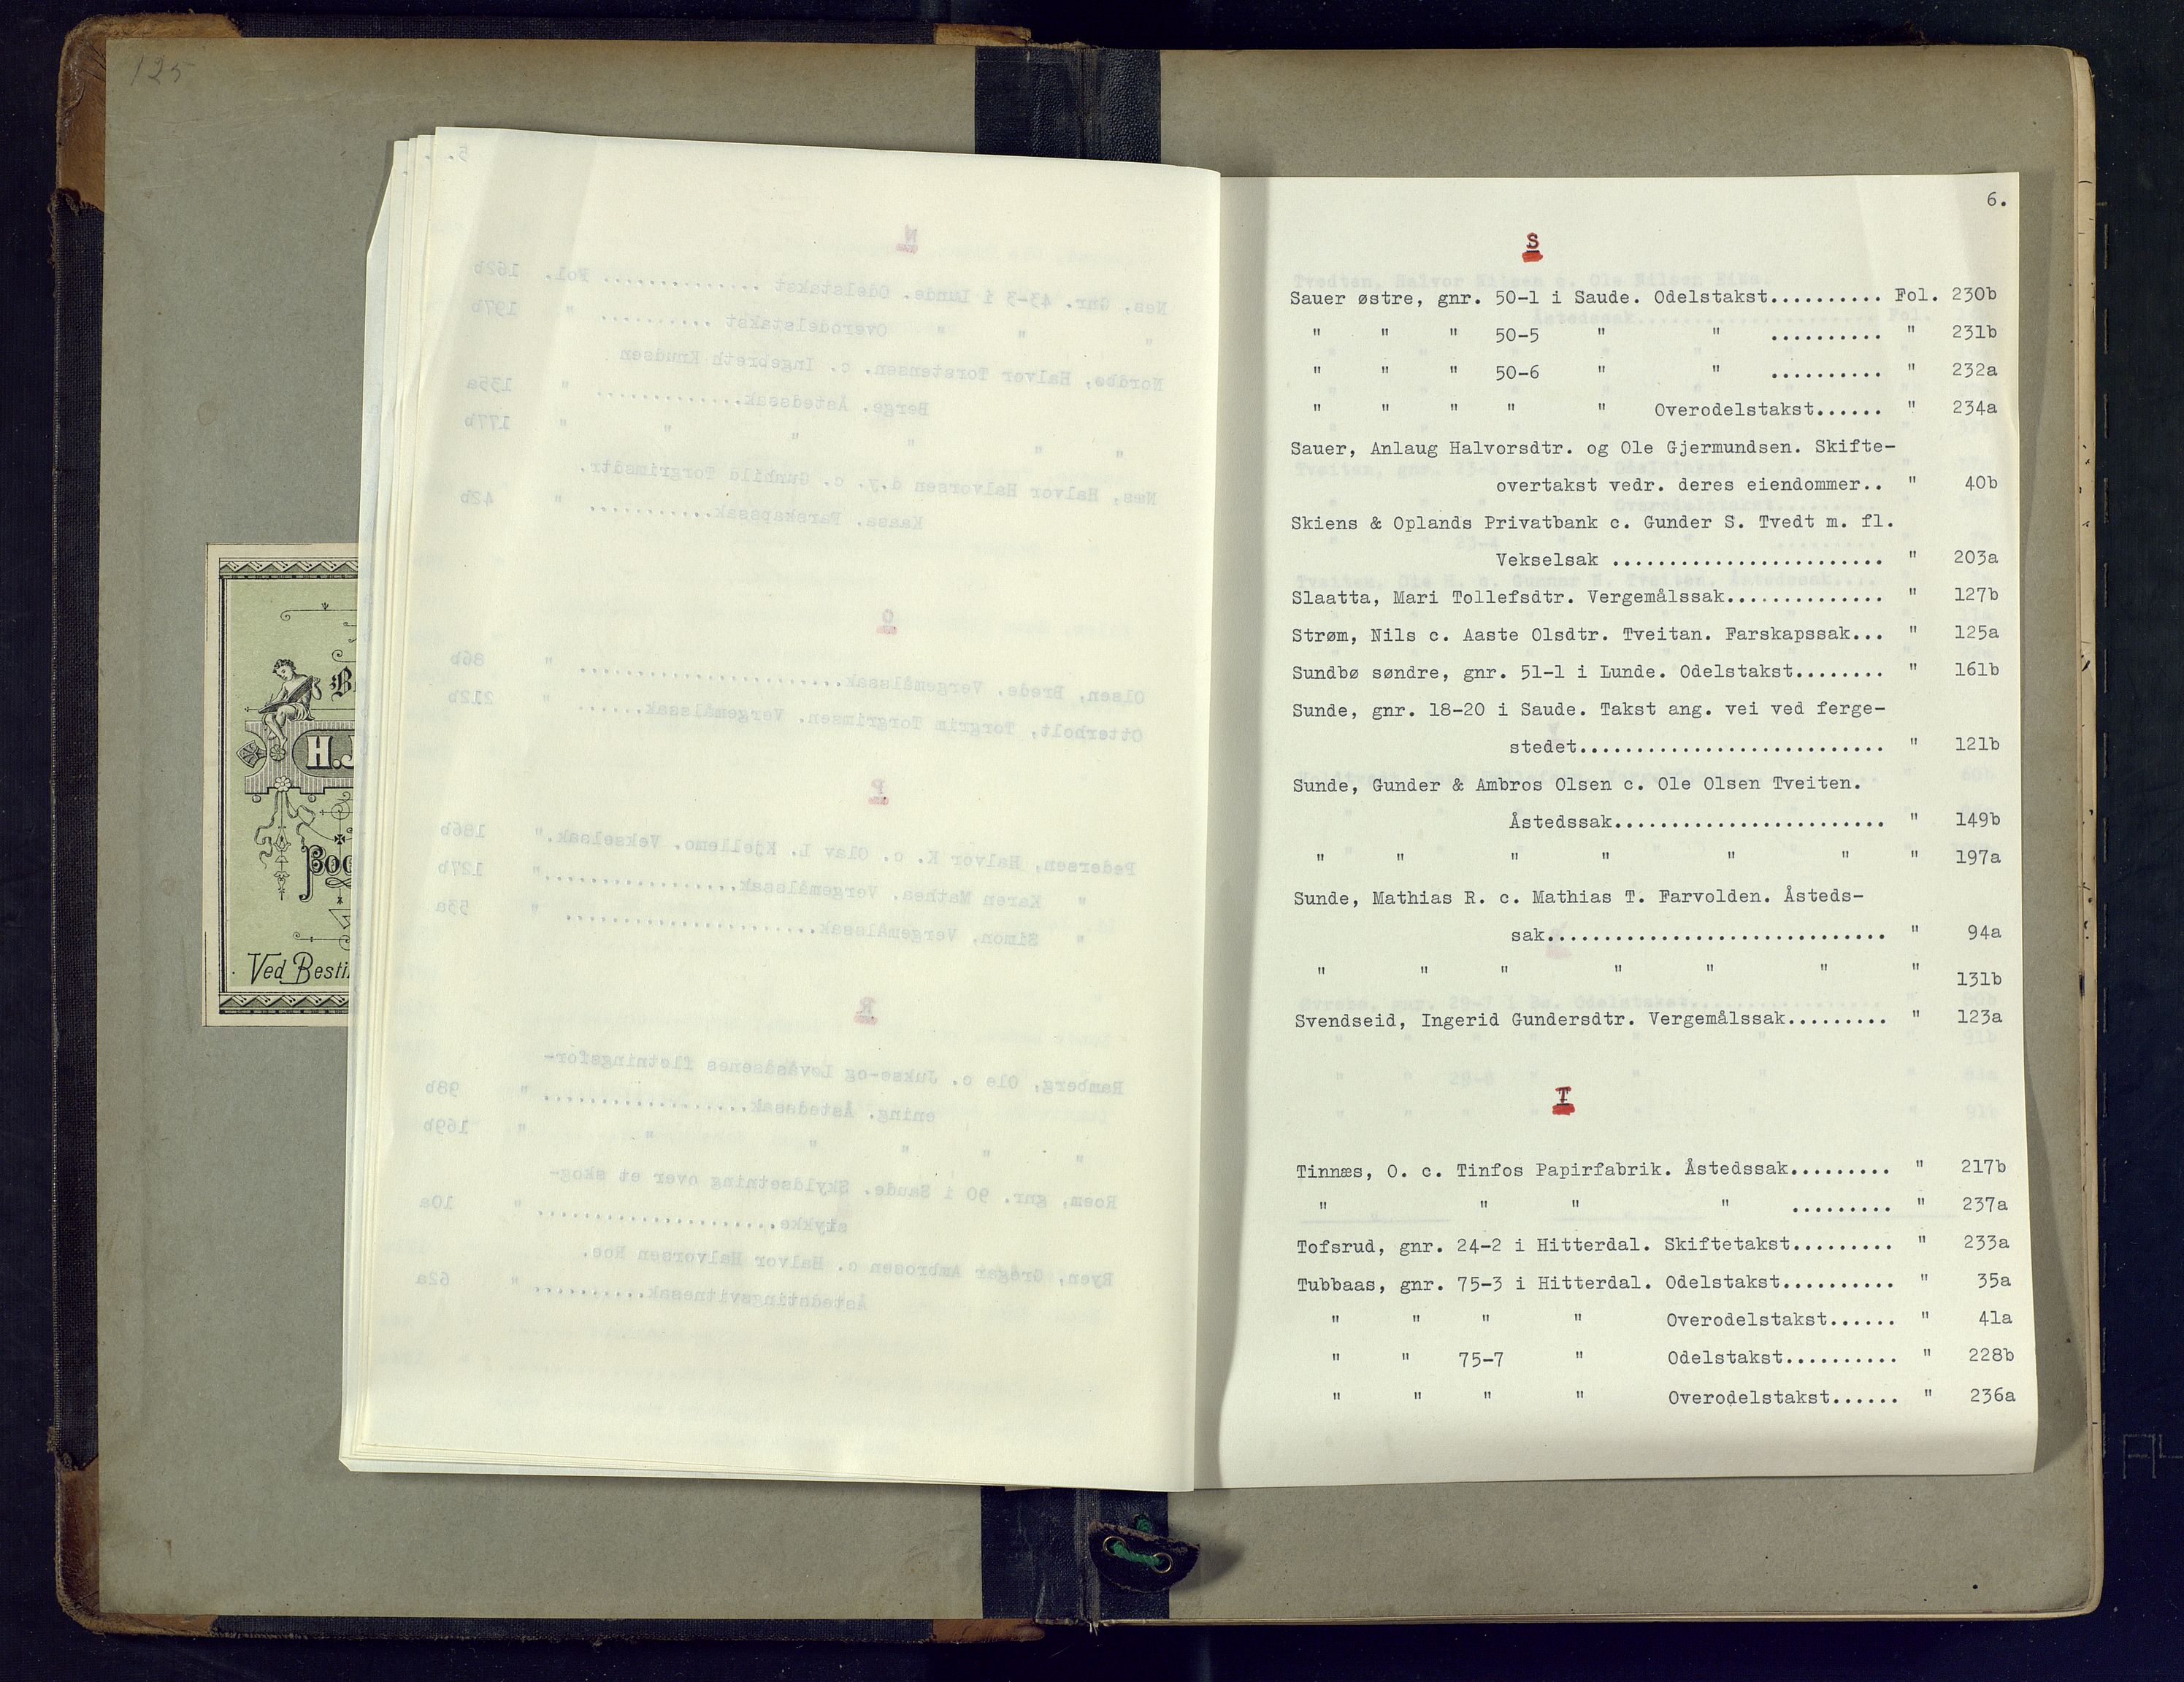 125
H.J
Ved Besti
6.
S
Sauer østre, gnr. 50-1 i Saude. Odelstakst.......... Fol. 230b
" " " 50-5 " " .......... " 231b
" " " 50-6 " " .......... " 232a
" " " " " Overodelstakst...... " 234a
Sauer, Anlaug Halvorsdtr. og Ole Gjermundsen. Skifte-
overtakst vedr. deres eiendommer.. " 40b
Skiens & Oplands Privatbank c. Gunder S. Tvedt m. fl.
Vekselsak ........................ " 203a
Slaatta, Mari Tollefsdtr. Vergemålssak.............. " 127b
Strøm, Nils c. Aaste Olsdtr. Tveitan. Farskapssak... " 125a
Sundbø søndre, gnr. 51-1 i Lunde. Odelstakst........ " 161b
Sunde, gnr. 18-20 i Saude. Takst ang. vei ved ferge-
stedet........................... " 121b
Sunde, Gunder & Ambros Olsen c. Ole Olsen Tveiten.
Åstedssak........................ " 149b
" " " " " " " 197a
Sunde, Mathias R. c. Mathias T. Farvolden. Åsteds-
sak.............................. " 94a
" " " " " " " 131b
Svendseid, Ingerid Gundersdtr. Vergemålssak......... " 123a
T
Tinnæs, O. c. Tinfos Papirfabrik. Åstedssak......... " 217b
" " " " ......... " 237a
Tofsrud, gnr. 24-2 i Hitterdal. Skiftetakst......... " 233a
Tubbaas, gnr. 75-3 i Hitterdal. Odelstakst.......... " 35a
" " " " Overodelstakst...... " 41a
" " 75-7 " Odelstakst.......... " 228b
" " " " Overodelstakst...... " 236a